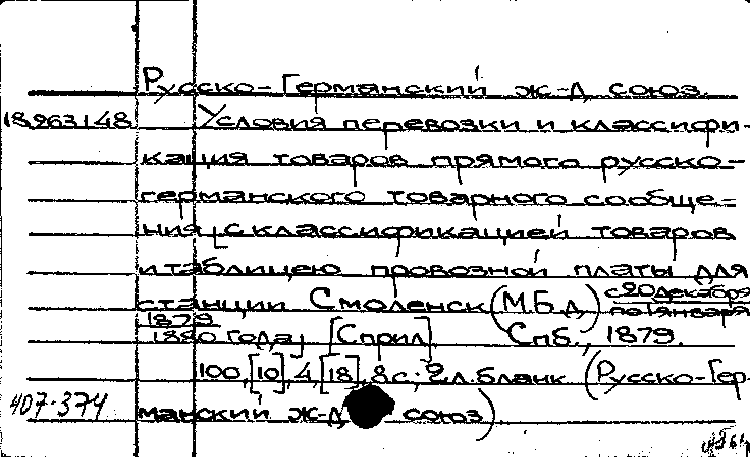 Русско-Германский ж-д союз.
18.963148 Условия перевозки и классифи-
кация товаров прямого русско-
германского товарного сообще-
ния [с классификацией товаров
и таблицею провозной платы для
станции Смоленск (М.Б.д.) с 20 декабря
1879 по 1 января
1880 года] [С прил]. Спб., 1879.
100, [10], 4, [18], 8 с.; 2 л. бланк (Русско-Гер
407.374 манский ж-д союз)